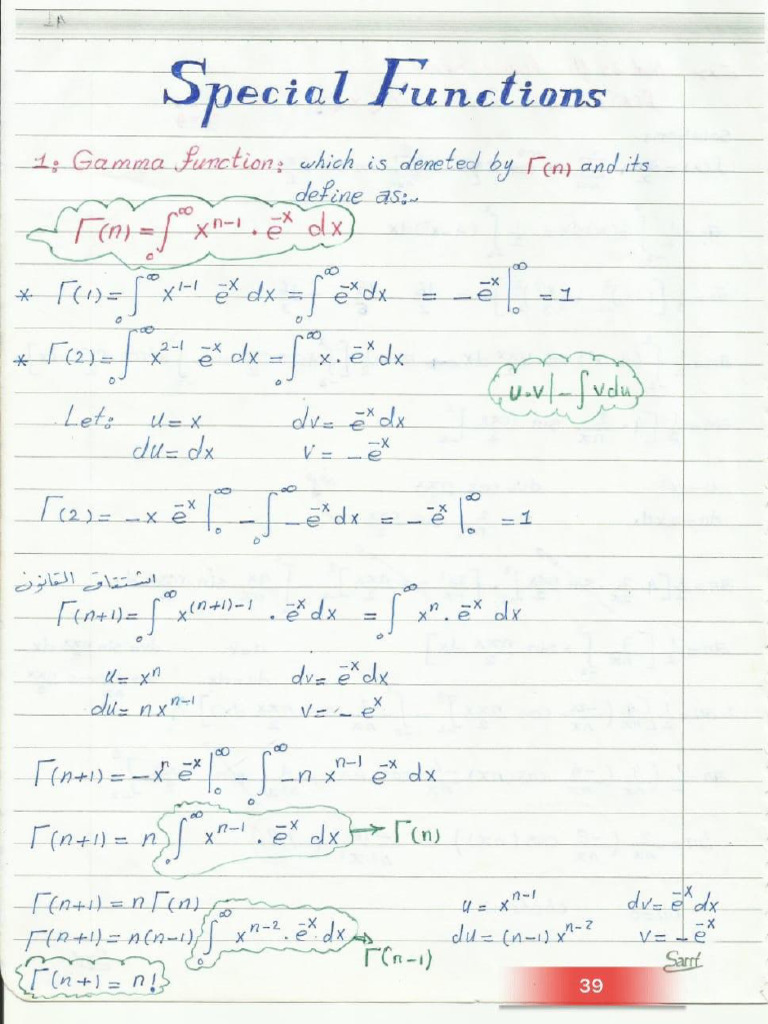 Special Functions
1: Gamma function: which is deneted by Γ(n) and its
define as:-
Γ(n) = ∫₀^∞ x^(n-1) . e^(-x) dx
* Γ(1) = ∫₀^∞ x^(1-1) e^(-x) dx = ∫₀^∞ e^(-x) dx = -e^(-x) |₀^∞ = 1
* Γ(2) = ∫₀^∞ x^(2-1) e^(-x) dx = ∫₀^∞ x . e^(-x) dx
u.v| - ∫ v du
Let: u = x dv = e^(-x) dx
du = dx v = -e^(-x)
Γ(2) = -x e^(-x) |₀^∞ - ∫₀^∞ -e^(-x) dx = -e^(-x) |₀^∞ = 1
اشتقاق القانون
Γ(n+1) = ∫₀^∞ x^((n+1)-1) . e^(-x) dx = ∫₀^∞ x^n . e^(-x) dx
u = x^n dv = e^(-x) dx
du = n x^(n-1) v = -e^x
Γ(n+1) = -x^n e^(-x) |₀^∞ - ∫₀^∞ -n x^(n-1) e^(-x) dx
Γ(n+1) = n ∫₀^∞ x^(n-1) . e^(-x) dx → Γ(n)
Γ(n+1) = n Γ(n) u = x^(n-1) dv = e^(-x) dx
Γ(n+1) = n(n-1) ∫₀^∞ x^(n-2) . e^(-x) dx → Γ(n-1) du = (n-1) x^(n-2) v = -e^(-x)
Γ(n+1) = n!
39